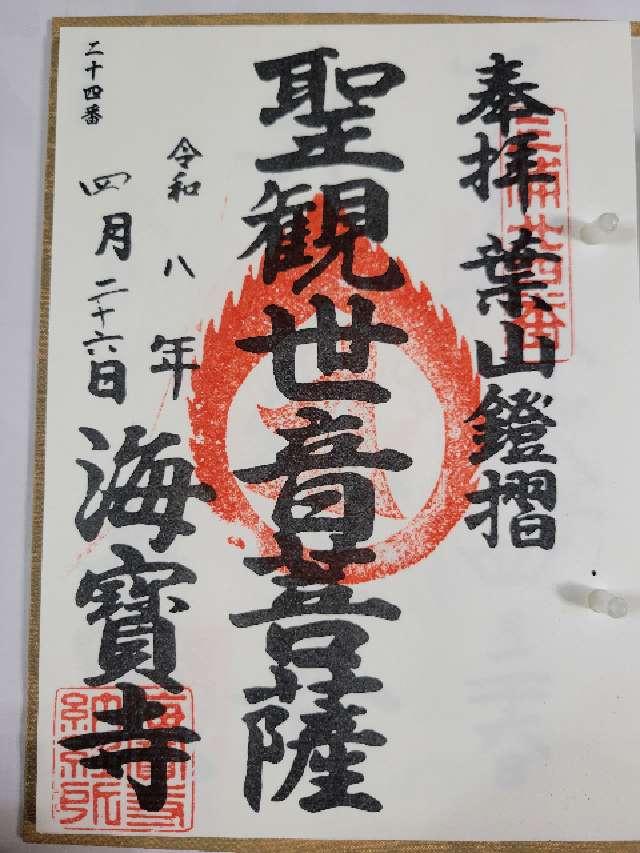 奉拝 葉山鐙摺
聖観世音菩薩
令和八年
四月二十六日
海寳寺
二十四番
海寳寺
納経所